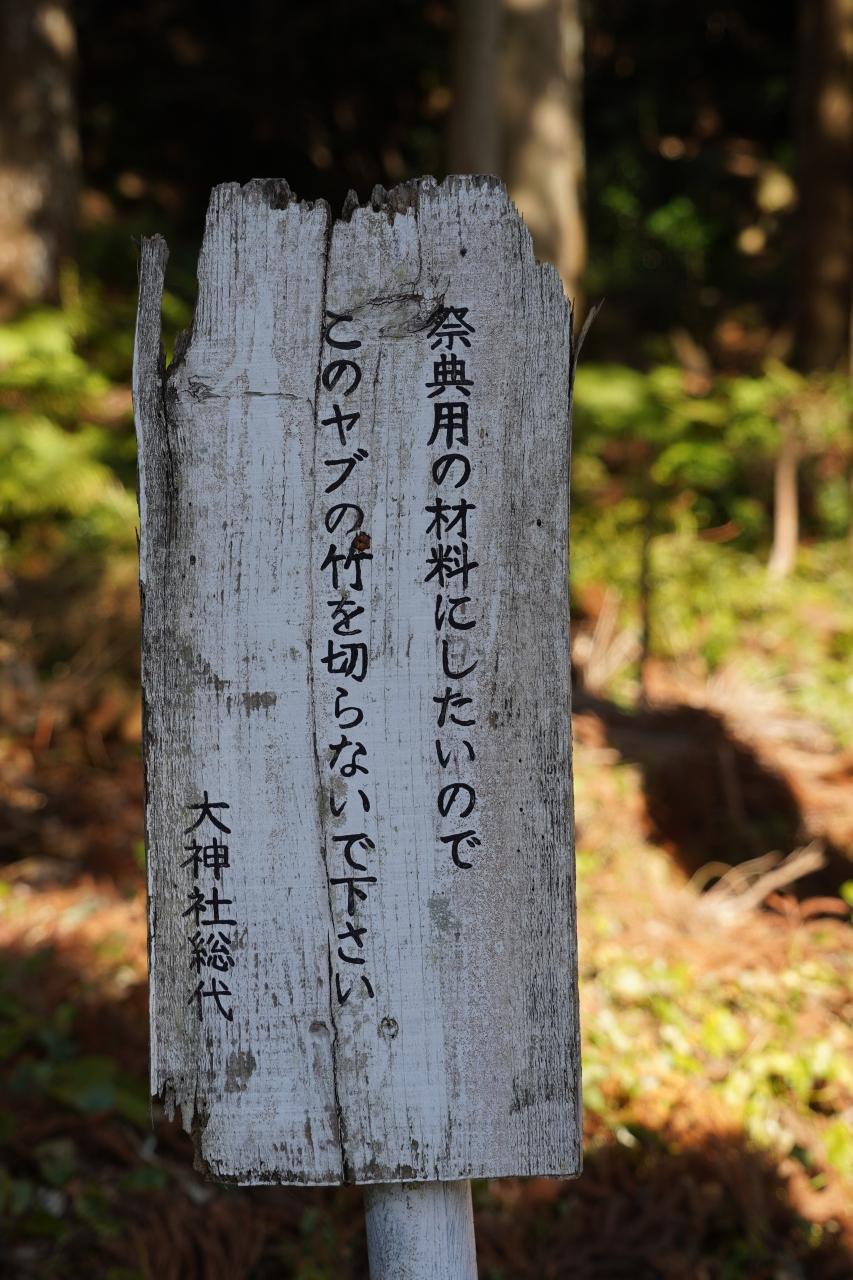 祭典用の材料にしたいので
このヤブの竹を切らないで下さい
大神社総代